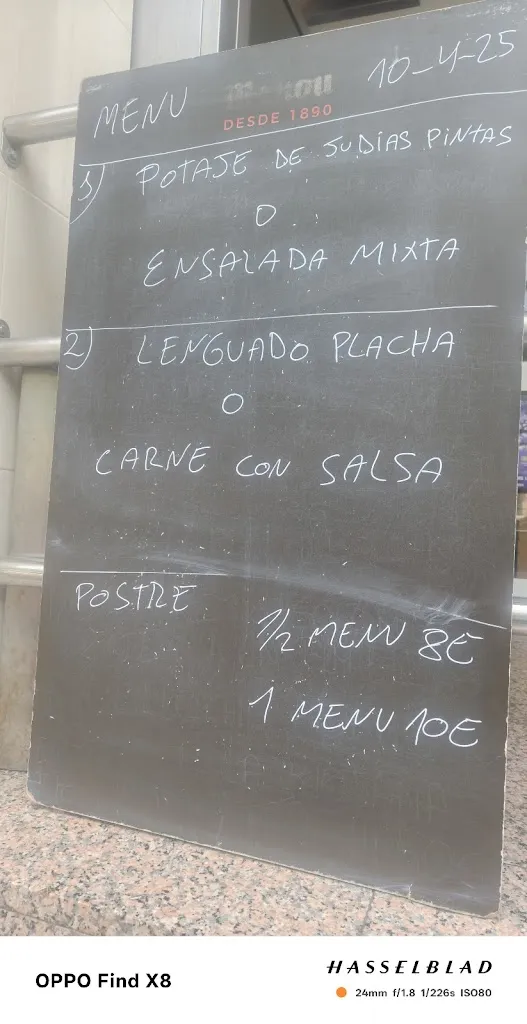 MENU
10-4-25
DESDE 1890
1) POTAJE DE JUDIAS PINTAS
O
ENSALADA MIXTA
2) LENGUADO PLACHA
O
CARNE CON SALSA
POSTRE
1/2 MENU 8E
1 MENU 10E
OPPO Find X8
HASSELBLAD
24mm f/1.8 1/226s ISO80